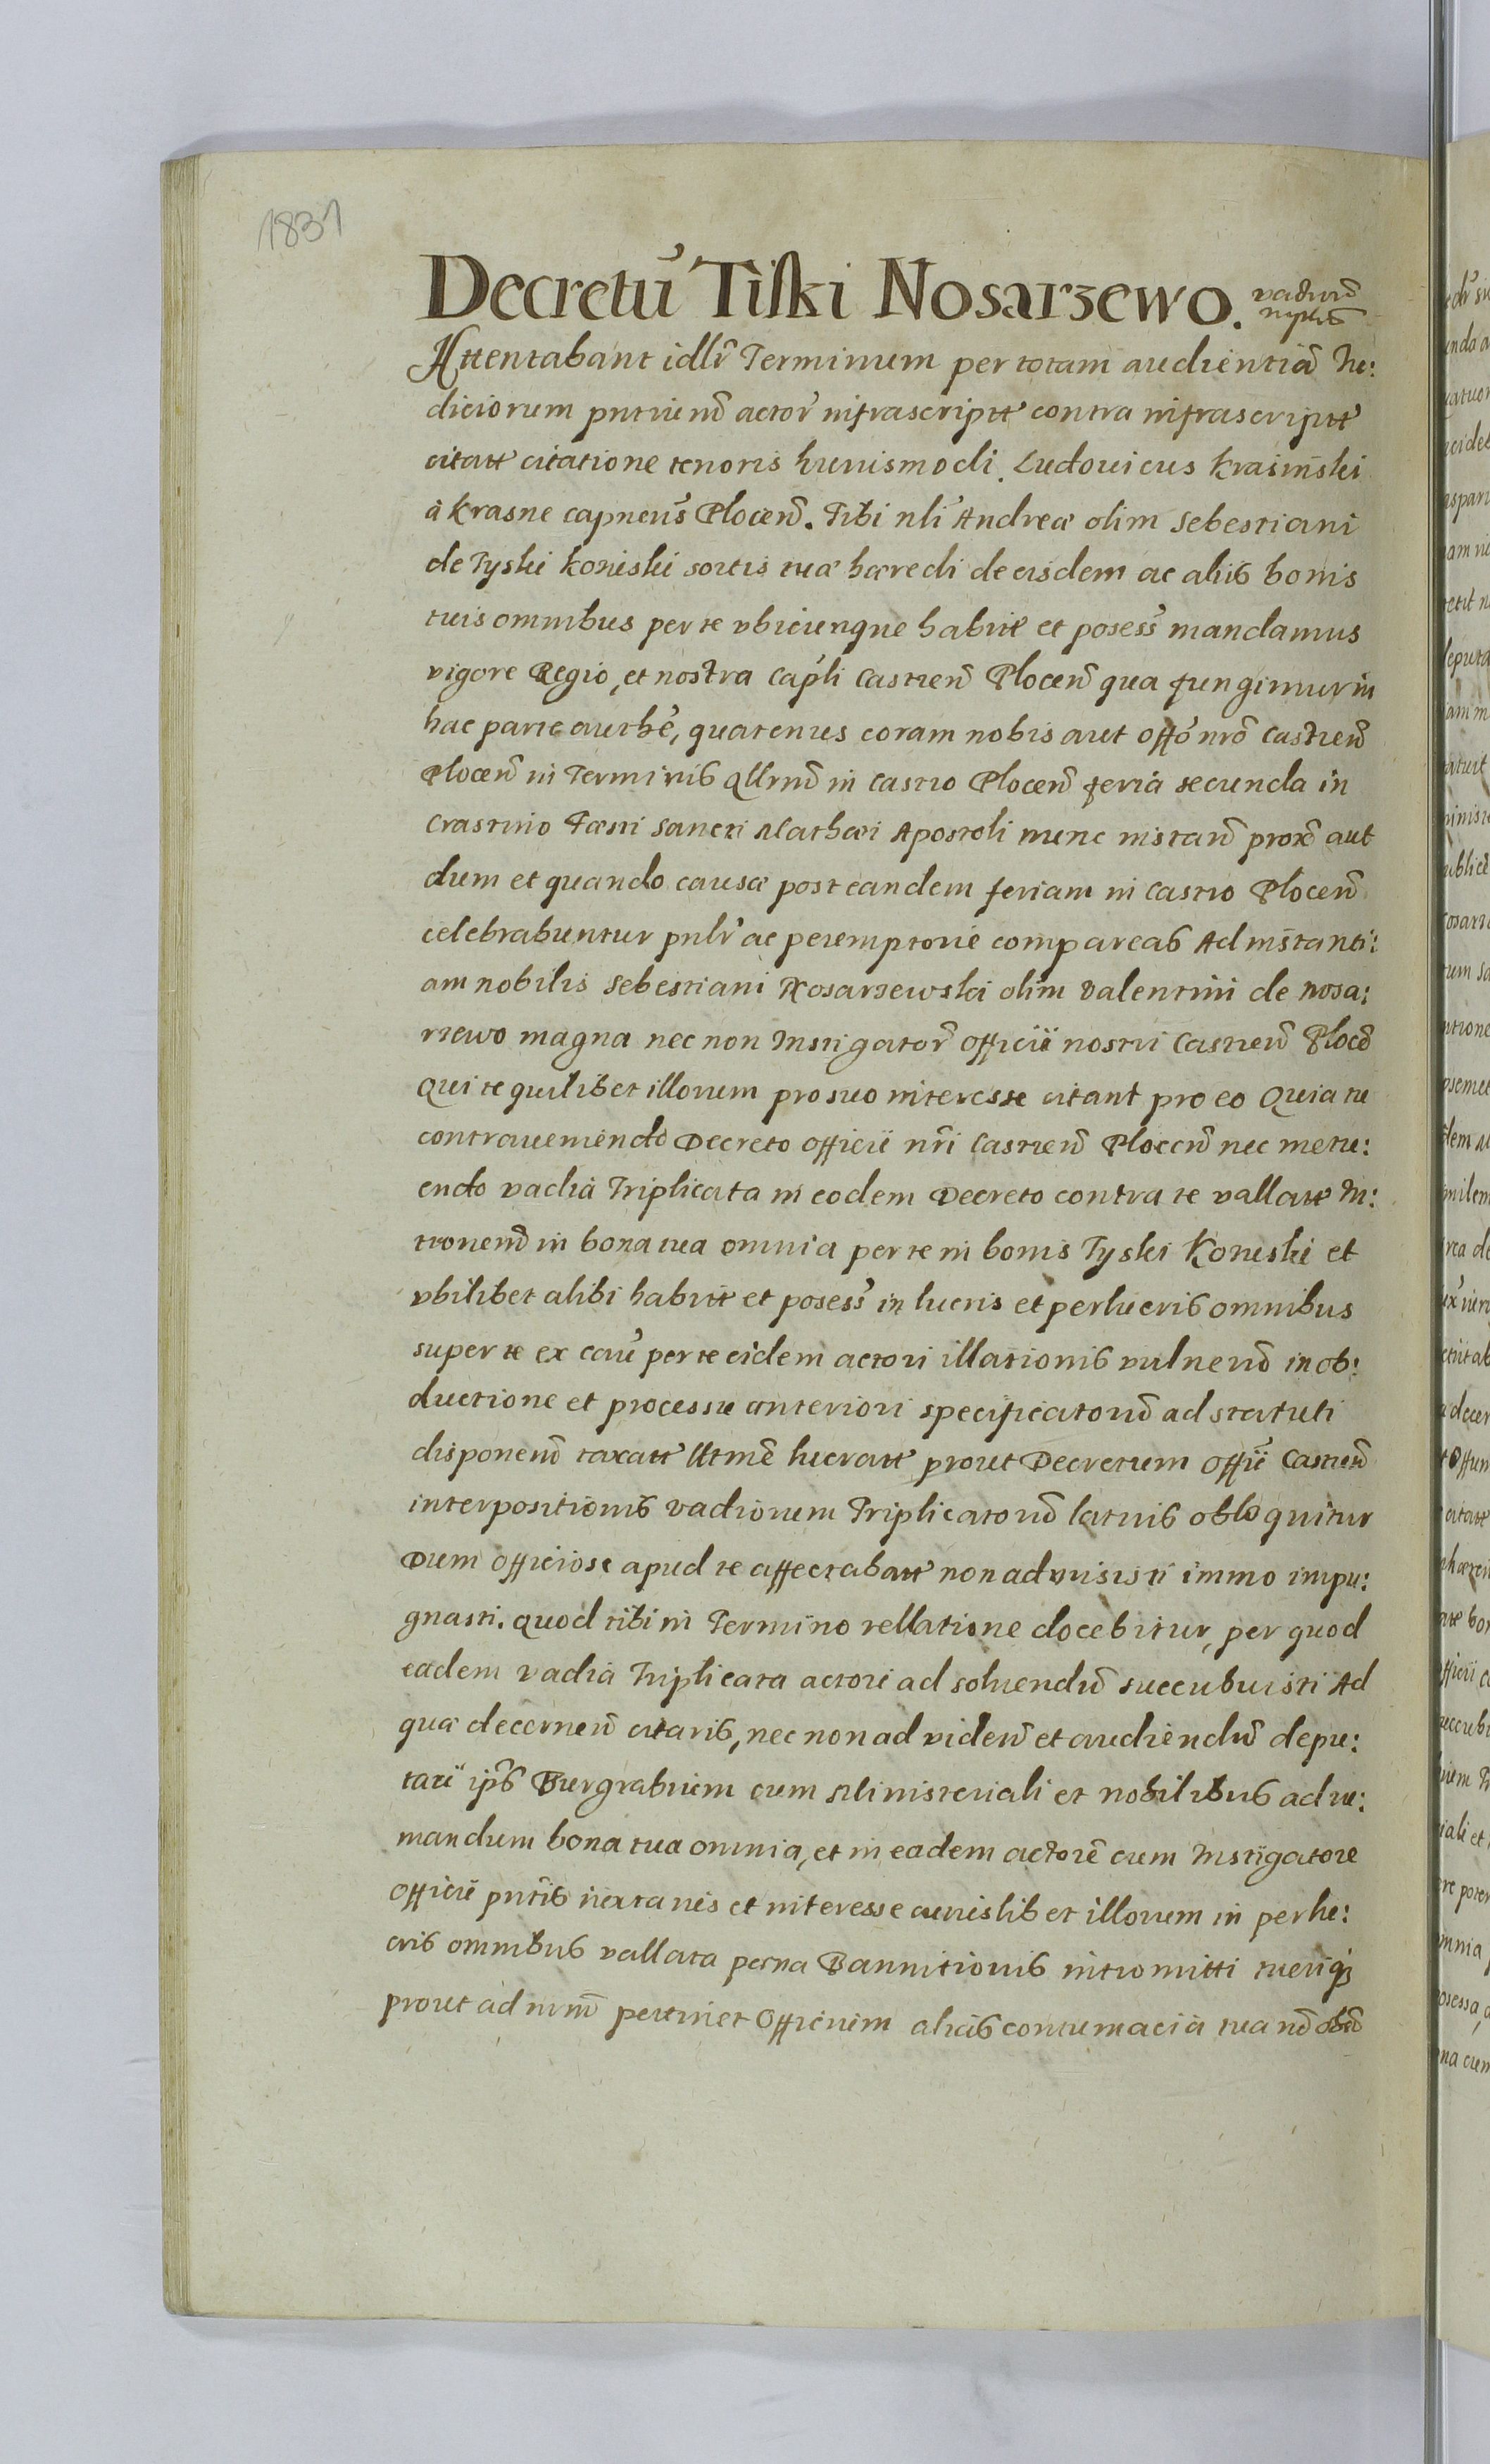 1831
Decretū Tiski Nosarzewo. vadiorū
triplict̃
Attentabant idlr̃ Terminum per totam audientiã Iu:
diciorum pntiuɱ actor̃ infrascriptt contra infrascriptt
citatt citatione tenoris huiusmodi. Ludouicus Krasinski
à Krasne capneũs Plocen̄. Tibi nli Andreæ olim Sebestiani
de Tyski Koniski sortis tuæ hæredi de eisdem ac aliis bonis
tuis omnibus per te vbicunque habitt et posess̃ mandamus
vigore Regio, et nostra capli Castren̄ Plocen̄ qua fungimur in
hac parte authẽ, quatenus coram nobis aut offõ nrõ Castren̄
Plocen̄ in Terminis qllrnɱ in Castro Plocen̄ feria secunda in
Crastino Fæsti Sancti Mathæi Apostoli nunc instan̄ prox̃ aut
dum et quando causæ post eandem feriam in Castro Plocen̄
celebrabuntur pnlr̃ ac peremptorie compareas Ad instanti:
am nobilis Sebestiani Nosarzewski olim Valentini de Nosa:
rzewo magna nec non Instigator̃ officii nostri Castren̄ Plocen̄
Qui te quilibet illorum pro suo interesse citant pro eo Quia tu
contraueniendo Decreto officii nr̃i Castren̄ Plocen̄ nec metu:
endo vadia Triplicata in eodem Decreto contra te vallatt In:
tromen̄ in bona tua omnia per te in bonis Tyski Koniski et
vbilibet alibi habitt et posess̃ in lucris et perlucris omnibus
super te ex caũ per te eidem actori illationis vulnerū in ob:
ductione et processu anteriori specificatorū ad statuti
disponen̄ taxatt lltmẽ lucratt prout Decretum offii Castren̄
interpositionis vadiorum Triplicatorū latius obloquitur
Dum officiose apud te affectabatt non admisisti immo impu:
gnasti. quod tibi in Termino rellatione docebitur, per quod
eadem vadia Triplicata actori ad soluendū succubuisti Ad
quæ decernen̄ citaris, nec non ad viden̄ et audiendū depu:
tari ips̃ Burgrabium cum Ministeriali et nobilibus adue:
mandum bona tua omnia, et in eadem actorẽ cum Instigatore
officii pntis iuxta ius et interesse cuiuslibet illorum in perlu:
cris omnibus vallata pæna Bannitionis intromitti tueriq3
prout ad nrm̃ pertinet Officium alias contumacia tua nõ obstñ